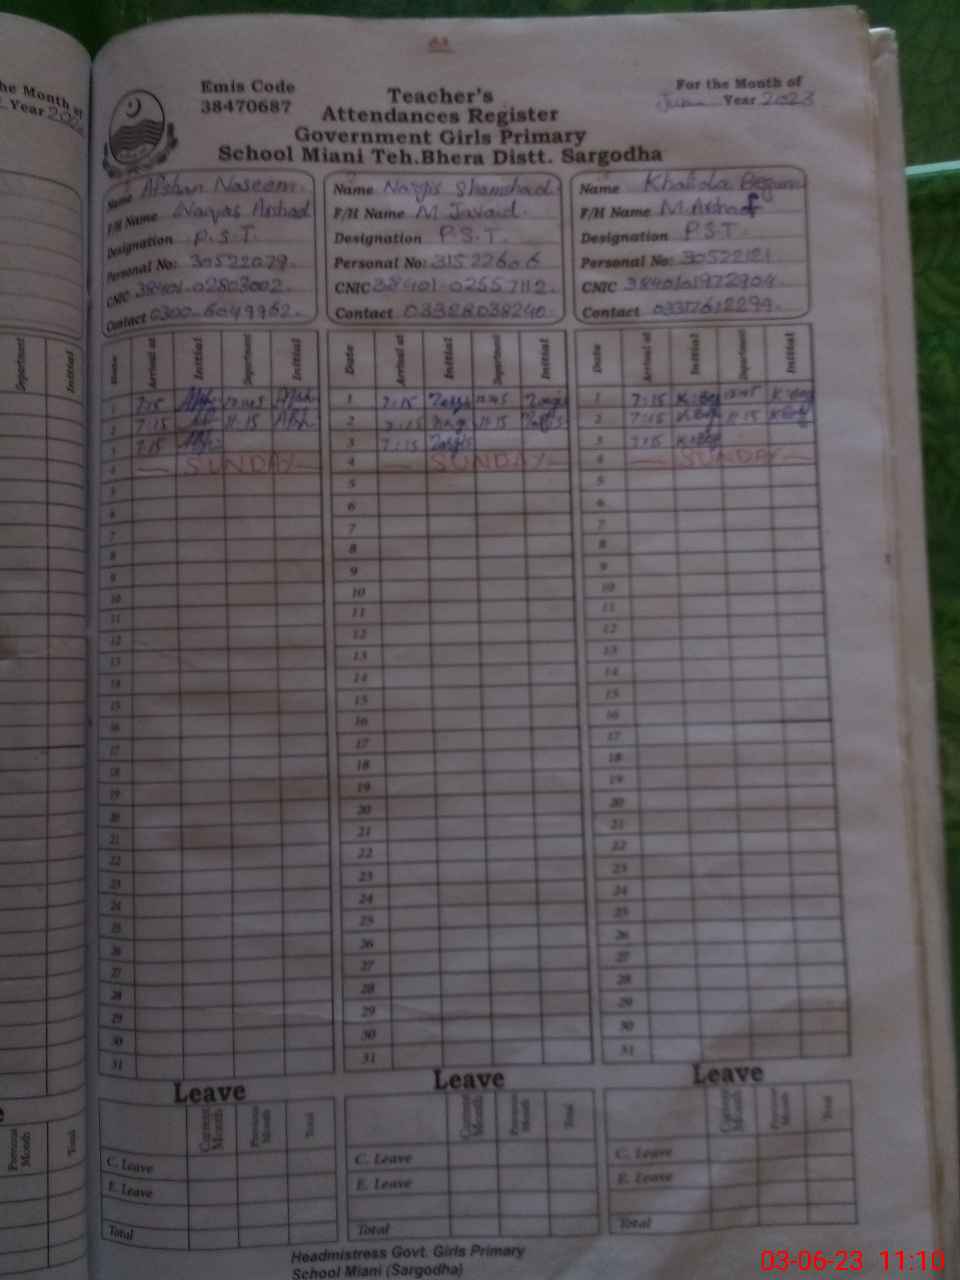 he Month of
Year 202
Emis Code
38470687
For the Month of
June Year 2023
Teacher's
Attendances Register
Government Girls Primary
School Miani Teh.Bhera Distt. Sargodha
Name Afshan Naseem.
F/H Name Arshad
Designation P.S.T.
Personal No: 30522079.
CNIC 38401-02803002.
Contact 0300-6049962.
Name Nargis Shamshad
F/H Name M Javaid.
Designation P.S.T.
Personal No: 31522606
CNIC 38401-02557112.
Contact 03328038240.
Name Khalida Begum
F/H Name M.Ashraf
Designation P.S.T.
Personal No: 30522121
CNIC 3840101972904
Contact 03317612299.
Department Initial
Date Arrival at Initial Department Initial
1 7:15 12:45
2 7:15 11:15
3 7:15
4 — SUNDAY —
5
6
7
8
9
10
11
12
13
14
15
16
17
18
19
20
21
22
23
24
25
26
27
28
29
30
31
Date Arrival at Initial Department Initial
1 7:15 12:45
2 7:15 11:15
3 7:15
4 — SUNDAY —
5
6
7
8
9
10
11
12
13
14
15
16
17
18
19
20
21
22
23
24
25
26
27
28
29
30
31
Date Arrival at Initial Department Initial
1 7:15 K.Beg 12:45 K.Beg
2 7:15 K.Beg 11:15 K.Beg
3 7:15 K.Beg
4 — SUNDAY —
5
6
7
8
9
10
11
12
13
14
15
16
17
18
19
20
21
22
23
24
25
26
27
28
29
30
31
Previous Month Total
Leave
Current Month Previous Month Total
C. Leave
E. Leave
Total
Leave
Current Month Previous Month Total
C. Leave
E. Leave
Total
Leave
Current Month Previous Month Total
C. Leave
E. Leave
Total
Headmistress Govt. Girls Primary
School Miani (Sargodha)
03-06-23 11:10